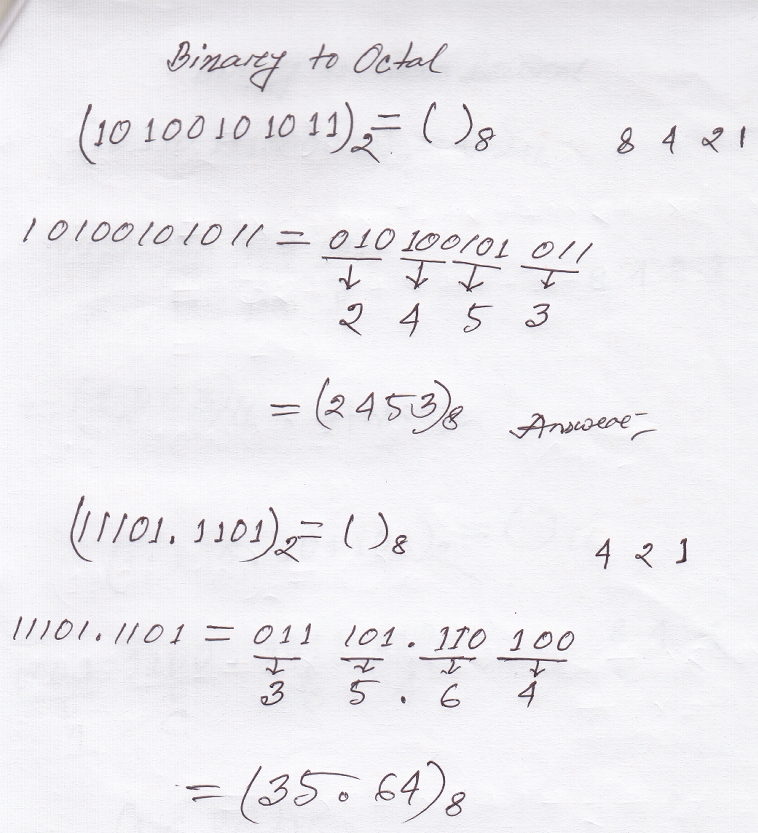 Binary to Octal
(10 100 101 011)2 = ( )8 8 4 2 1
10100101011 = 010 100 101 011
↓ ↓ ↓ ↓
2 4 5 3
= (2453)8 Answer
(11101.1101)2 = ( )8 4 2 1
11101.1101 = 011 101 . 110 100
↓ ↓ ↓ ↓
3 5 . 6 4
= (35.64)8